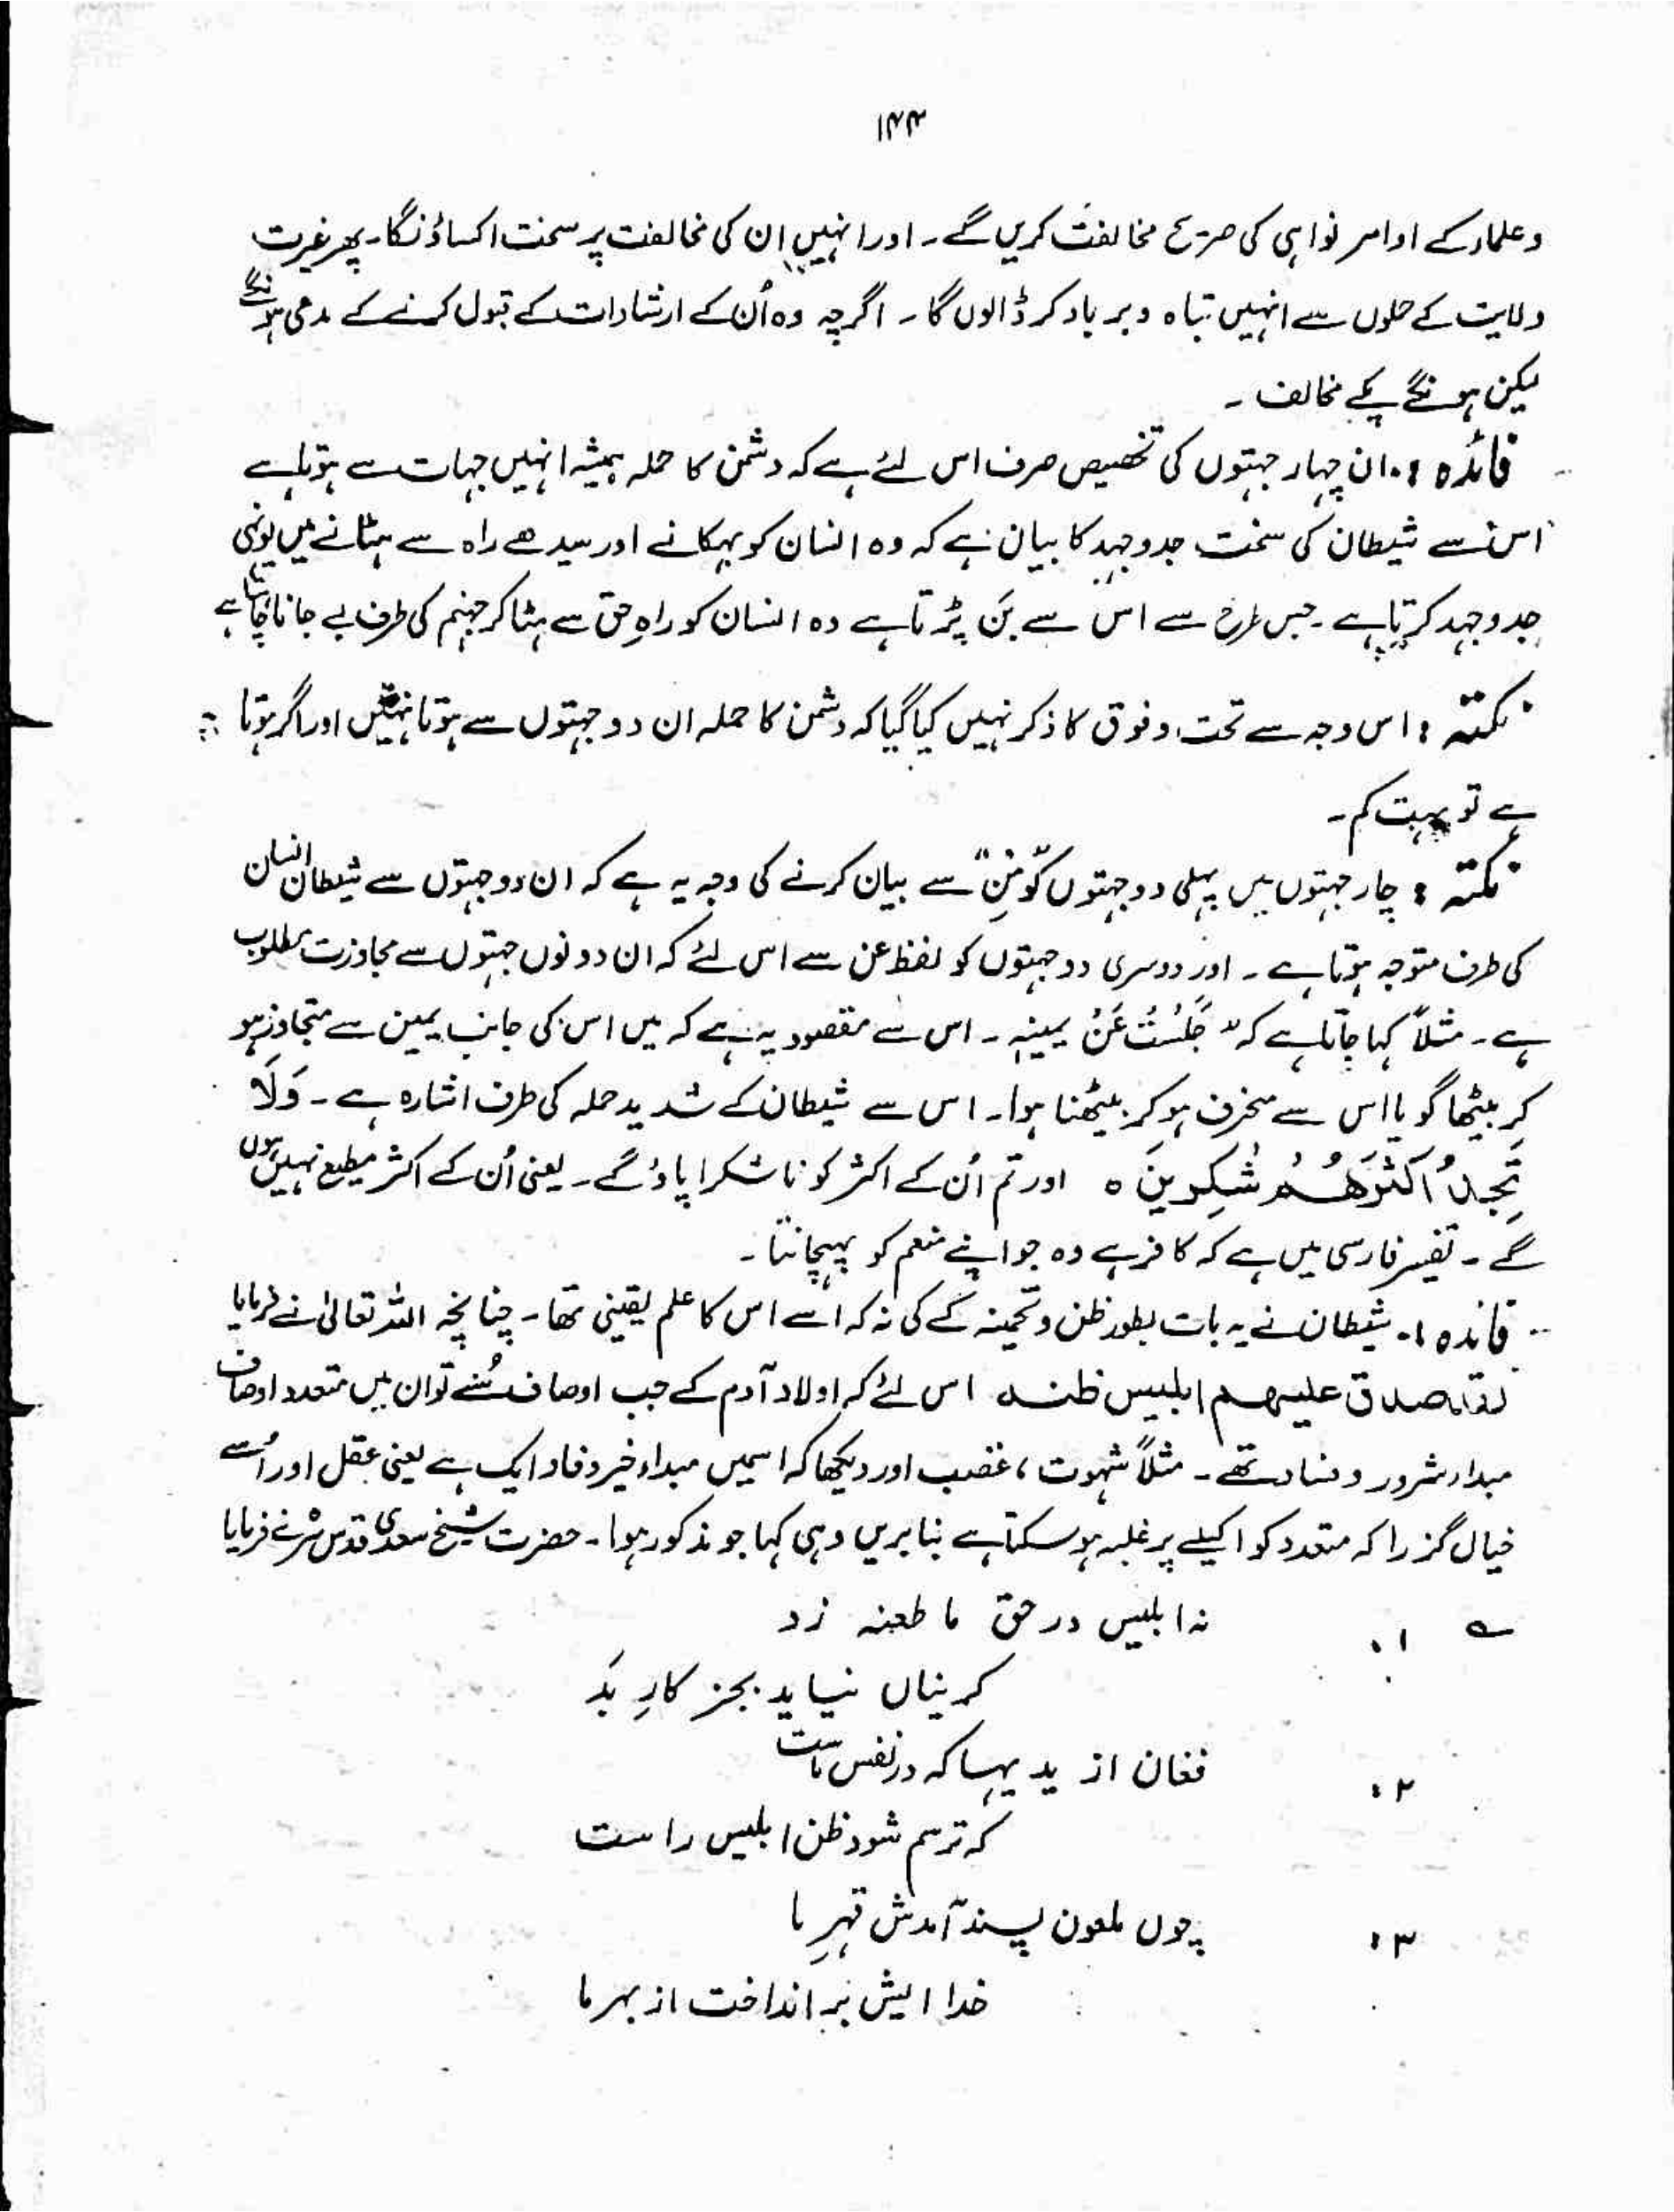 ۱۴۴
وعلماء کے اوامر نواہی کی صریح مخالفت کریں گے۔ اور انہیں ان کی مخالفت پر سخت اکساؤنگا۔ پھر غیرت
ولایت کے حملوں سے انہیں تباہ و برباد کر ڈالوں گا۔ اگرچہ وہ اُن کے ارشادات کے قبول کرنے کے مدعی ہونگے
لیکن ہونگے پکے مخالف۔
فائدہ :۔ ان چہار جہتوں کی تخصیص صرف اس لئے ہے کہ دشمن کا حملہ ہمیشہ انہیں جہات سے ہوتا ہے
اس سے شیطان کی سخت جدوجہد کا بیان ہے کہ وہ انسان کو بہکانے اور سیدھے راہ سے ہٹانے میں یونہی
جدوجہد کرتا ہے۔ جس طرح سے اس سے بَن پڑتا ہے وہ انسان کو راہِ حق سے ہٹا کر جہنم کی طرف لے جانا چاہتا ہے
نکتہ : اس وجہ سے تحت و فوق کا ذکر نہیں کیا گیا کہ دشمن کا حملہ ان دو جہتوں سے ہوتا نہیں اور اگر ہوتا
ہے تو بہت کم۔
نکتہ : چار جہتوں میں پہلی دو جہتوں کو "مِن" سے بیان کرنے کی وجہ یہ ہے کہ ان دو جہتوں سے شیطان انسان
کی طرف متوجہ ہوتا ہے۔ اور دوسری دو جہتوں کو لفظ عن سے اس لئے کہ ان دونوں جہتوں سے مجاوزت مطلوب
ہے۔ مثلاً کہا جاتا ہے کہ "جَلَسْتُ عَنْ یمینہٖ۔ اس سے مقصود یہ ہے کہ میں اس کی جانب یمین سے متجاوز ہو
کر بیٹھا گویا اس سے منحرف ہو کر بیٹھنا ہوا۔ اس سے شیطان کے شدید حملہ کی طرف اشارہ ہے۔ وَلَا
تَجِدُ اَکْثَرَھُمْ شٰکِرِیْنَ ہ اور تم اُن کے اکثر کو ناشکرا پاؤ گے۔ یعنی اُن کے اکثر مطیع نہیں ہوں
گے۔ تفسیر فارسی میں ہے کہ کافر ہے وہ جو اپنے منعم کو پہچانتا۔
فائدہ :۔ شیطان نے یہ بات بطور ظن و تخمینہ کے کی نہ کہ اسے اس کا علم یقینی تھا۔ چنانچہ اللہ تعالیٰ نے فرمایا
لقد صدق علیھم ابلیس ظنہ اس لئے کہ اولاد آدم کے جب اوصاف سُنے تو ان میں متعدد اوصاف
مبداء شرور و فساد تھے۔ مثلاً شہوت، غضب اور دیکھا کہ اسمیں مبداء خیر و فاد ایک ہے یعنی عقل اور اُسے
خیال گزرا کہ متعدد کو اکیلے پر غلبہ ہو سکتا ہے بنا بریں وہی کہا جو مذکور ہوا۔ حضرت شیخ سعدی قدس سرہ نے فرمایا
؎ ۱: نہ ابلیس در حق ما طعنہ زد
کزیناں نیاید بجز کارِ بَد
۲: فغان از بدیہا کہ در نفس ماست
کہ ترسم شود ظن ابلیس راست
۳: چوں ملعون پسند آمدش قہرِ ما
خدا ایش بر انداخت از بہر ما